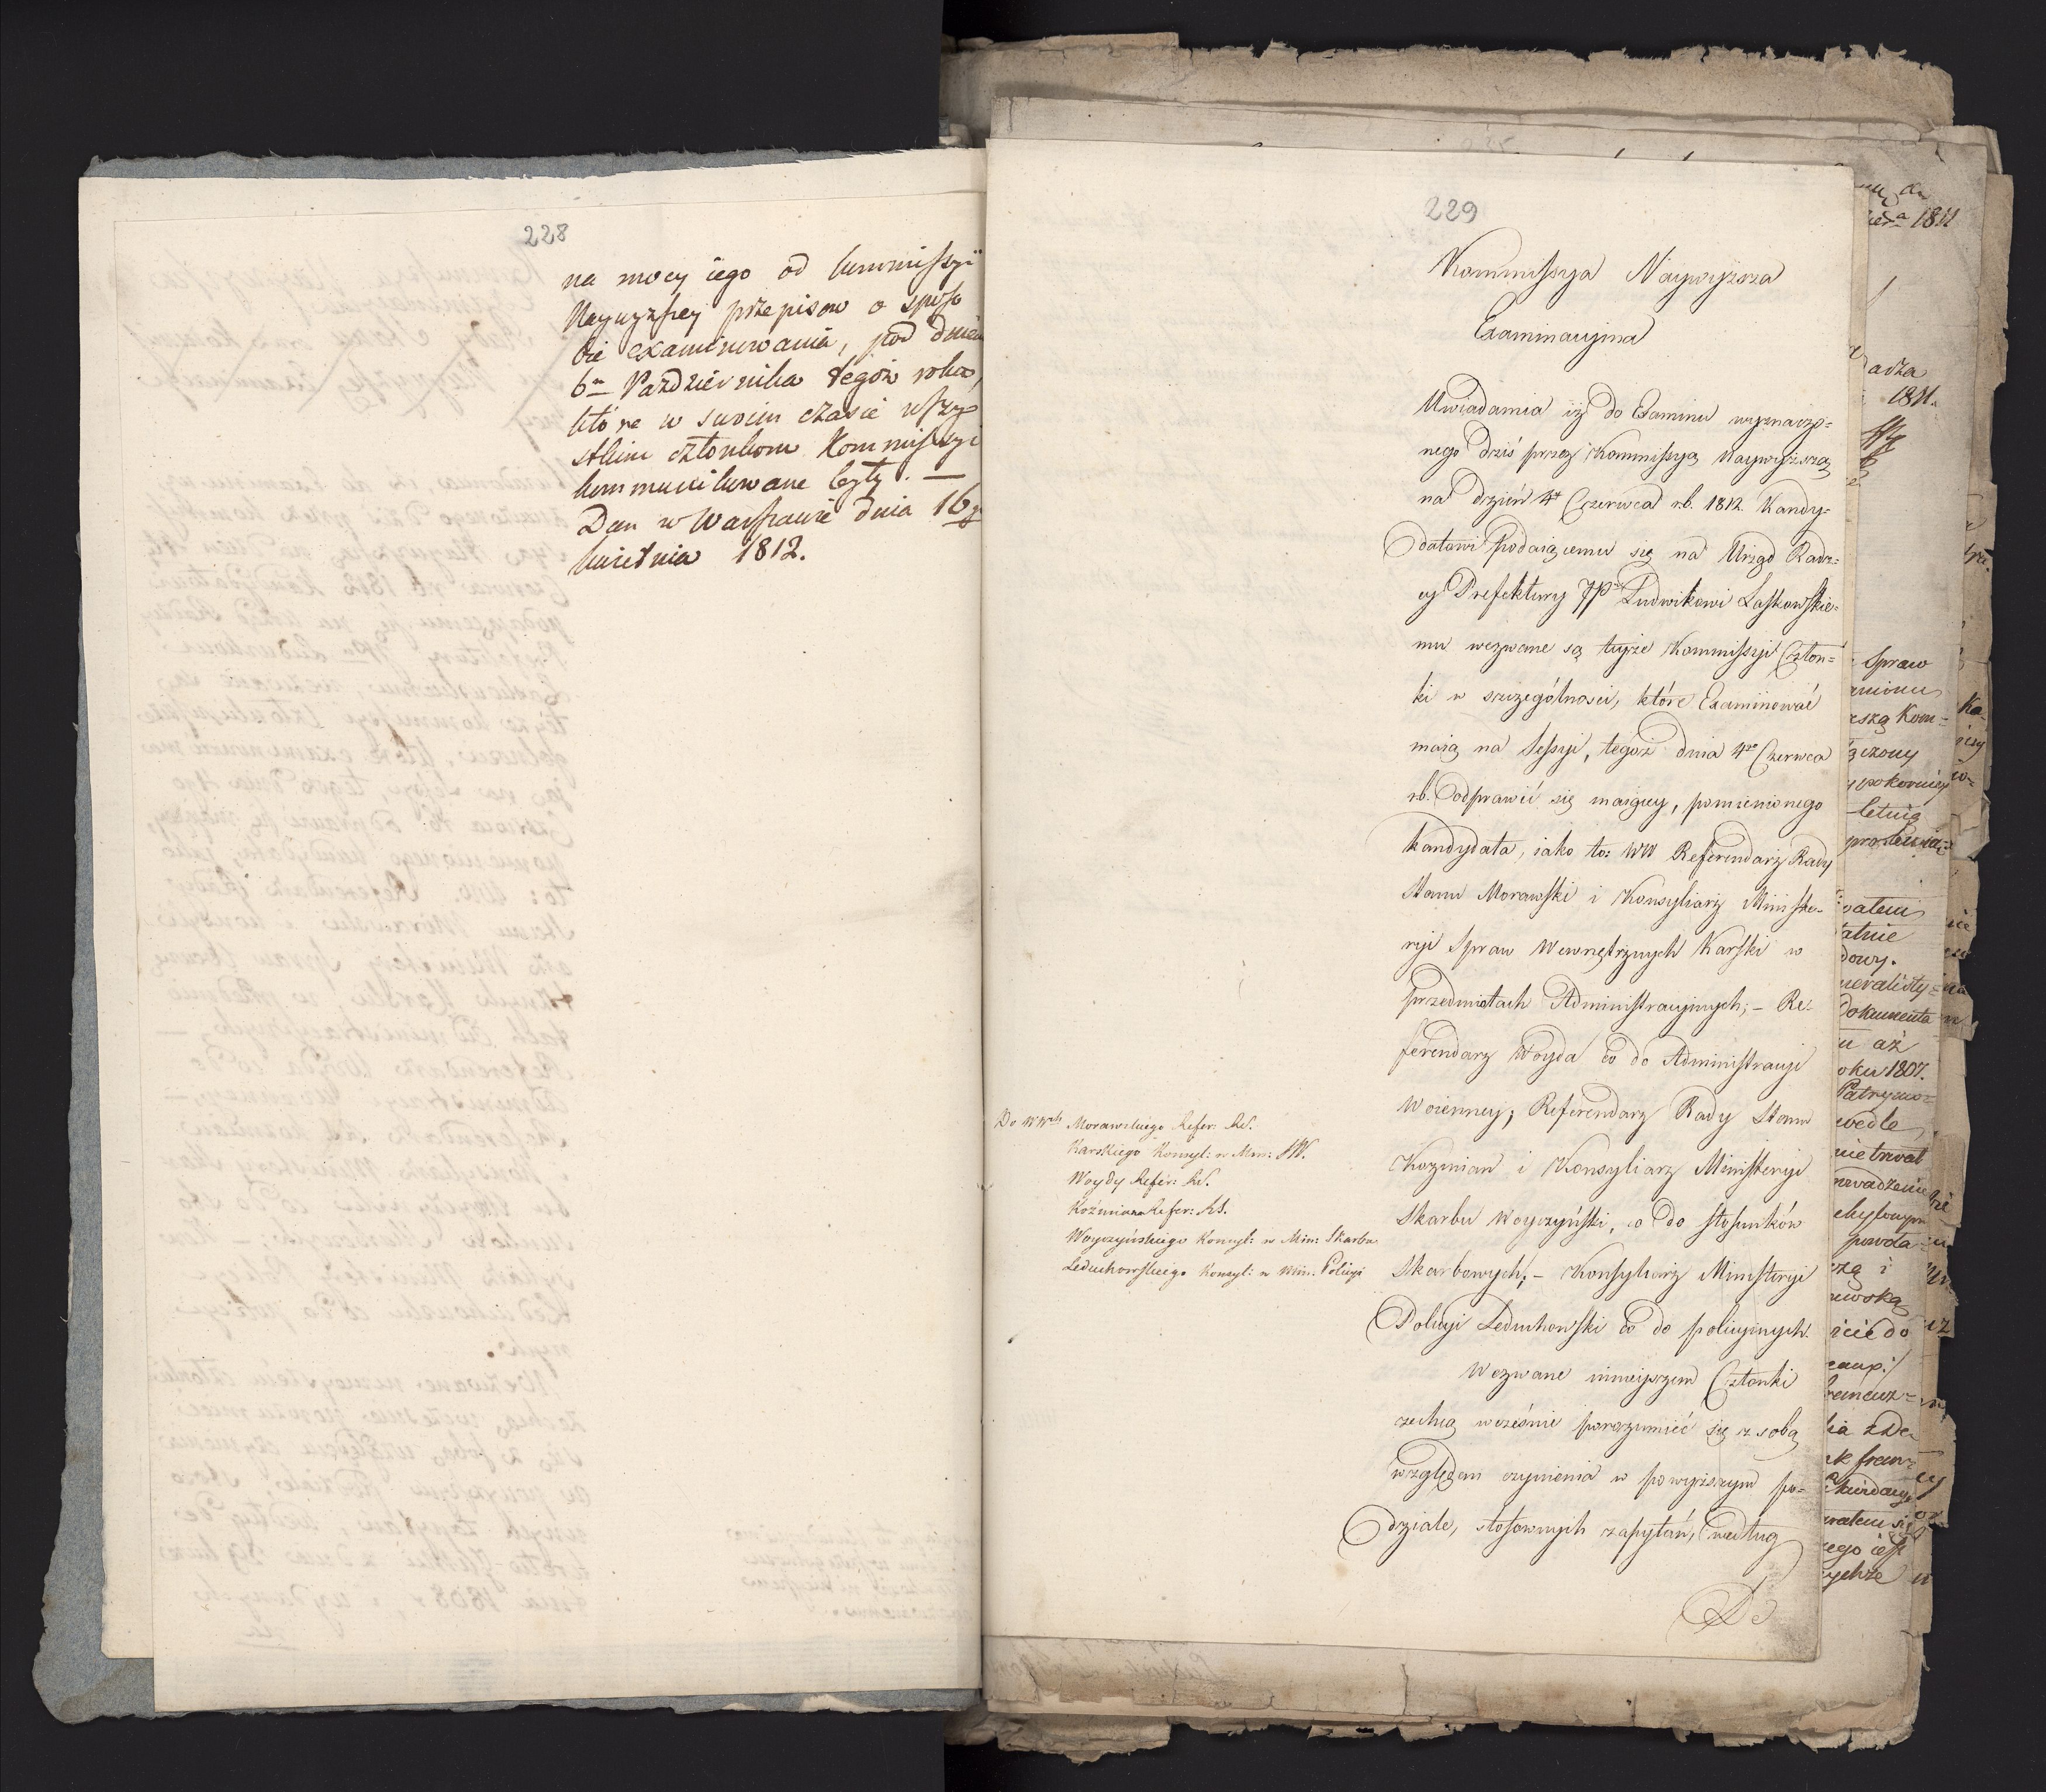 228
na mocy iego od kommissyi
Naywyzszey przepisow o sposo
bie examinowania, pod dniem
6m Pazdziernika tegoż roku,
które w swoim czasie wszy
stkim członkom Kommissyi
kommunikowane były. —
Dan w Warszawie dnia 16
kwietnia 1812.
229
Kommissya Naywyższa
Examinacyina
Uwiadamia iż do Examinu wyznaczo=
nego dziś przez Kommissyą Naywyższą
na dzień 4t Czerwca r.b. 1812. Kandy=
datowi podaiącemu się na Urząd Radz=
cy Prefektury JP. Ludwikowi Laskowskie=
mu wezwane są teyże Kommissyi Człon=
ki w szczególnosci, które Examinować
maią na Sessyi, tegoż dnia 4go Czerwca
r.b. odprawić się maiącey, pomienionego
kandydata, iako to: WW Referendarz Rady
Stanu Morawski i Konsyliarz Ministe-
ryi Spraw Wewnętrznych Karski w
przedmiotach Administracyinych; – Re-
ferendarz Woyda co do Administracyi
Woienney; Referendarz Rady Stanu
Kozmian i Konsyliarz Ministeryi
Skarbu Woyczyński, co do stosunków
Skarbowych; – Konsyliarz Ministeryi
Policyi Leduchowski co do policyinych.
Wezwane ninieyszem Członki
zechcą wcześnie porozumieć się z sobą
względem czynienia w powyższym po=
dziale, stosownych zapytań, według
De
Do WWch Morawskiego Refer: RS.
Karskiego Konsyl: w Min: SW.
Woydy Refer: RS.
Koźmiana Refer: RS.
Woyczyńskiego Konsyl: w Min: Skarbu
Leduchowskiego Konsyl: w Min. Policyi
1811
1811.
Spraw
czony
letnią
Dokumenta
u aż
oku 1807.
wedle